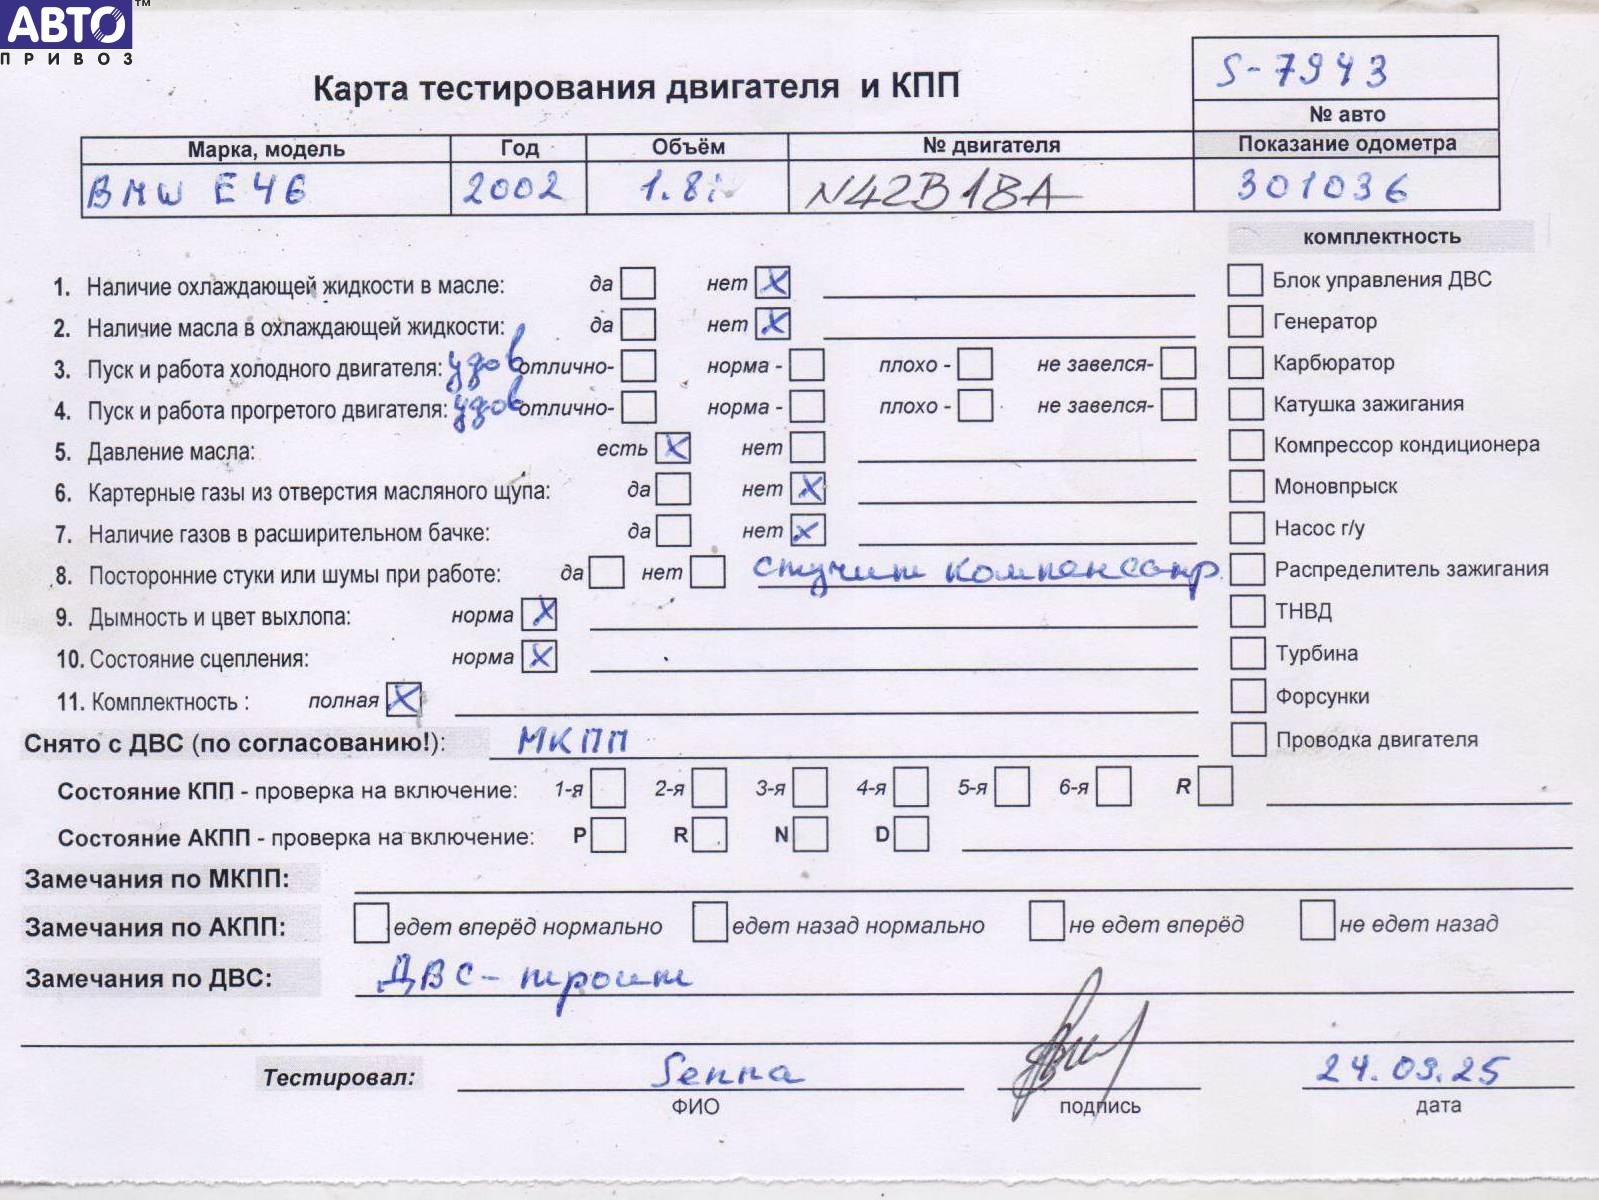 АВТО™
ПРИВОЗ
Карта тестирования двигателя и КПП
S-7943
№ авто
Марка, модель Год Объём № двигателя Показание одометра
BMW E46 2002 1.8i N42B18A 301036
комплектность
1. Наличие охлаждающей жидкости в масле: да нет X
Блок управления ДВС
2. Наличие масла в охлаждающей жидкости: да нет X
Генератор
3. Пуск и работа холодного двигателя: удов отлично- норма - плохо - не завелся-
Карбюратор
4. Пуск и работа прогретого двигателя: удов отлично- норма - плохо - не завелся-
Катушка зажигания
5. Давление масла: есть X нет
Компрессор кондиционера
6. Картерные газы из отверстия масляного щупа: да нет X
Моновпрыск
7. Наличие газов в расширительном бачке: да нет X
Насос г/у
8. Посторонние стуки или шумы при работе: да нет стучит компенсатр.
Распределитель зажигания
9. Дымность и цвет выхлопа: норма X
ТНВД
10. Состояние сцепления: норма X
Турбина
11. Комплектность : полная X
Форсунки
Снято с ДВС (по согласованию!): МКПП
Проводка двигателя
Состояние КПП - проверка на включение: 1-я 2-я 3-я 4-я 5-я 6-я R
Состояние АКПП - проверка на включение: P R N D
Замечания по МКПП:
Замечания по АКПП: едет вперёд нормально едет назад нормально не едет вперёд не едет назад
Замечания по ДВС: ДВС - троит
Тестировал: Senna 24.09.25
ФИО подпись дата